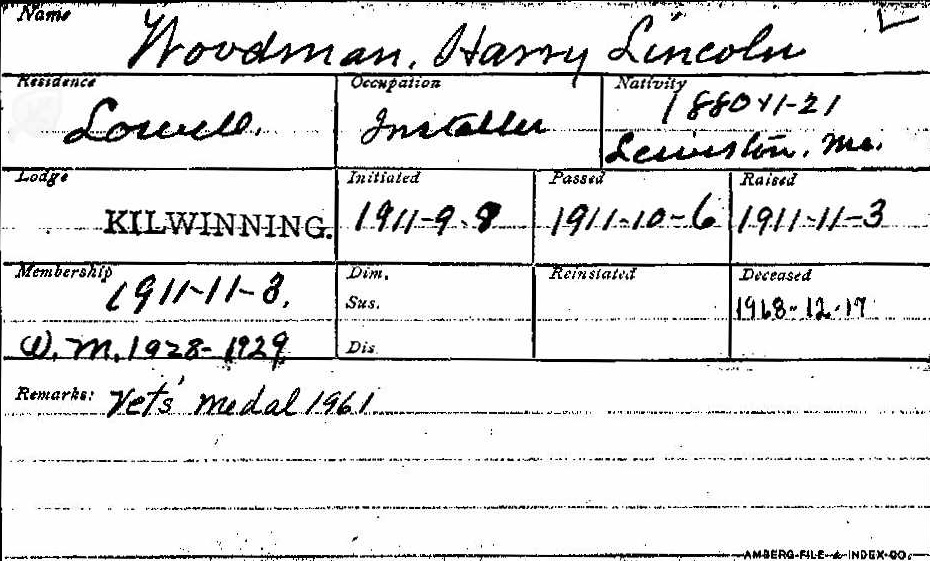 Name
Woodman, Harry Lincoln
Residence Occupation Nativity
Lowell. Installer 1880-11-21
Lewiston, Me.
Lodge Initiated Passed Raised
KILWINNING. 1911-9-8 1911-10-6 1911-11-3
Membership Dim. Reinstated Deceased
1911-11-3. Sus. 1968-12-17
W. M. 1928-1929 Dis.
Remarks: Vet's medal 1961
AMBERG FILE & INDEX CO.